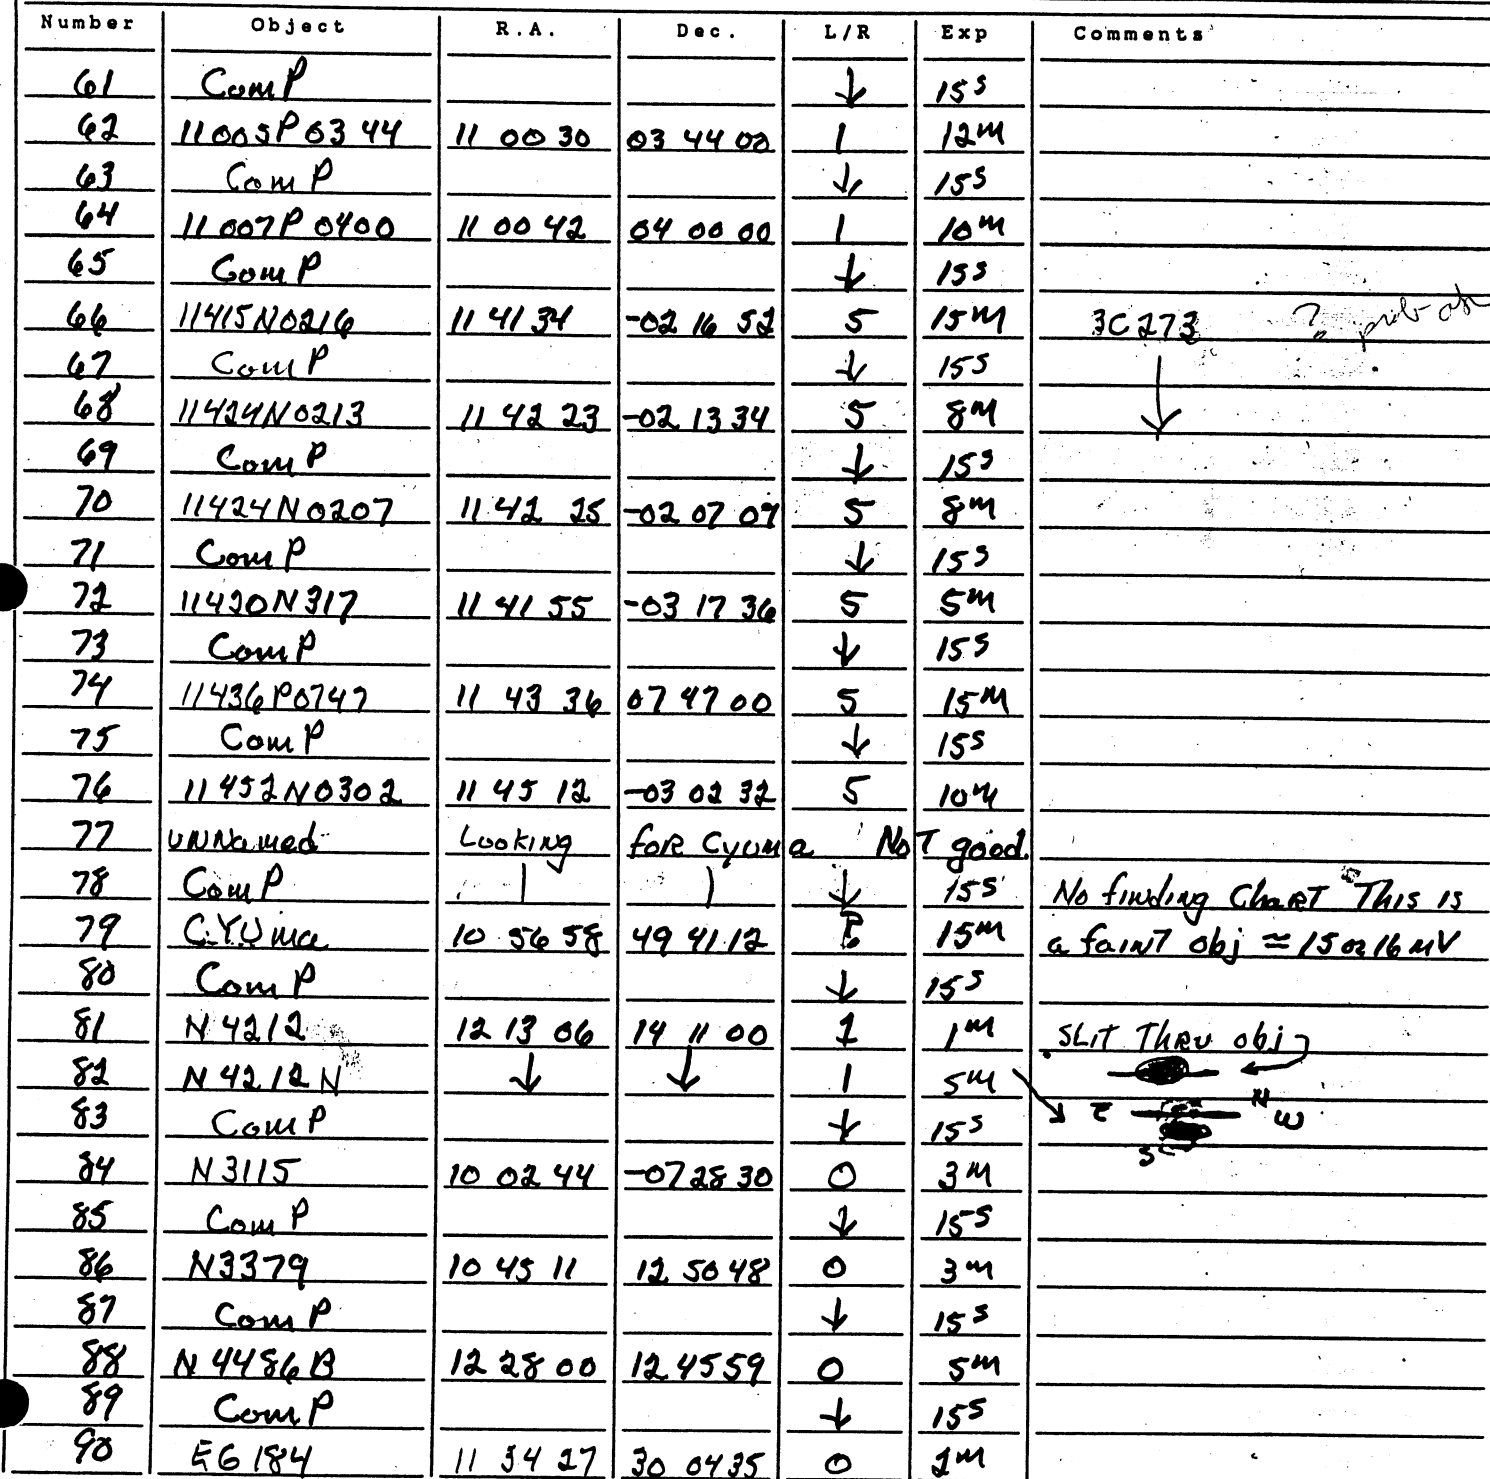 Number Object R.A. Dec. L/R Exp Comments
61 Comp ↓ 15s
62 11005P0344 11 00 30 03 44 00 1 12m
63 Comp ↓ 15s
64 11007P0400 11 00 42 04 00 00 1 10m
65 Comp ↓ 15s
66 11415N0216 11 41 34 -02 16 52 5 15m 3C273 ? prob ok
67 Comp ↓ 15s
68 11424N0213 11 42 23 -02 13 34 5 8m ↓
69 Comp ↓ 15s
70 11424N0207 11 42 25 -02 07 07 5 8m
71 Comp ↓ 15s
72 11420N317 11 41 55 -03 17 36 5 5m
73 Comp ↓ 15s
74 11436P0747 11 43 36 07 47 00 5 15m
75 Comp ↓ 15s
76 11452N0302 11 45 12 -03 02 32 5 10m
77 UNNamed Looking foR Cyuma NoT good.
78 Comp | | ↓ 15s No finding ChaRT This is
79 CYUma 10 56 58 49 41 12 P. 15m a fainT obj ≈ 15 or 16 mV
80 Comp ↓ 15s
81 N4212 12 13 06 14 11 00 1 1m SLiT THRU obj
82 N4212N ↓ ↓ 1 5m
E N W
83 Comp ↓ 15s
S
84 N3115 10 02 44 -07 28 30 0 3m
85 Comp ↓ 15s
86 N3379 10 45 11 12 50 48 0 3m
87 Comp ↓ 15s
88 N4486B 12 28 00 12 45 59 0 5m
89 Comp ↓ 15s
90 EG184 11 34 27 30 04 35 0 2m